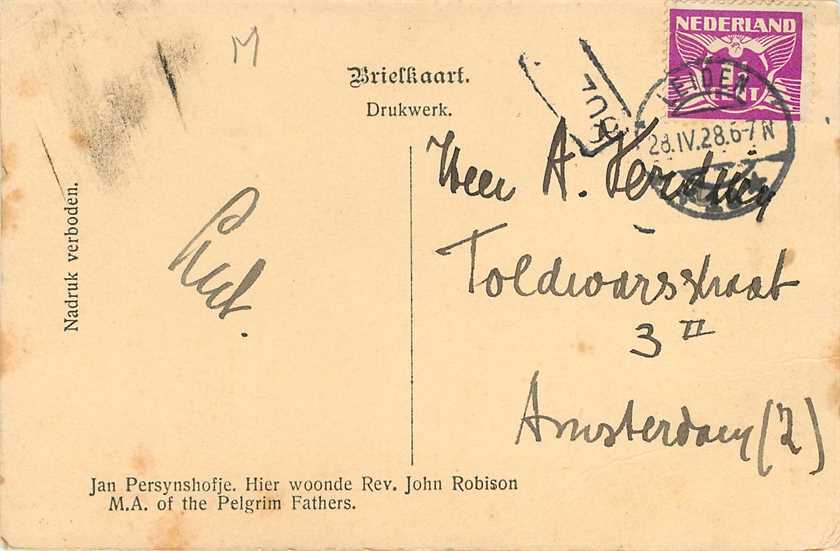 M
Briefkaart.
Drukwerk.
NEDERLAND
CENT
LEIDEN
28.IV.28.6-7N
Nadruk verboden.
Heer A. Verduin
Toldwarsstraat
3 II
Amsterdam (Z)
Jan Persynshofje. Hier woonde Rev. John Robison
M.A. of the Pelgrim Fathers.